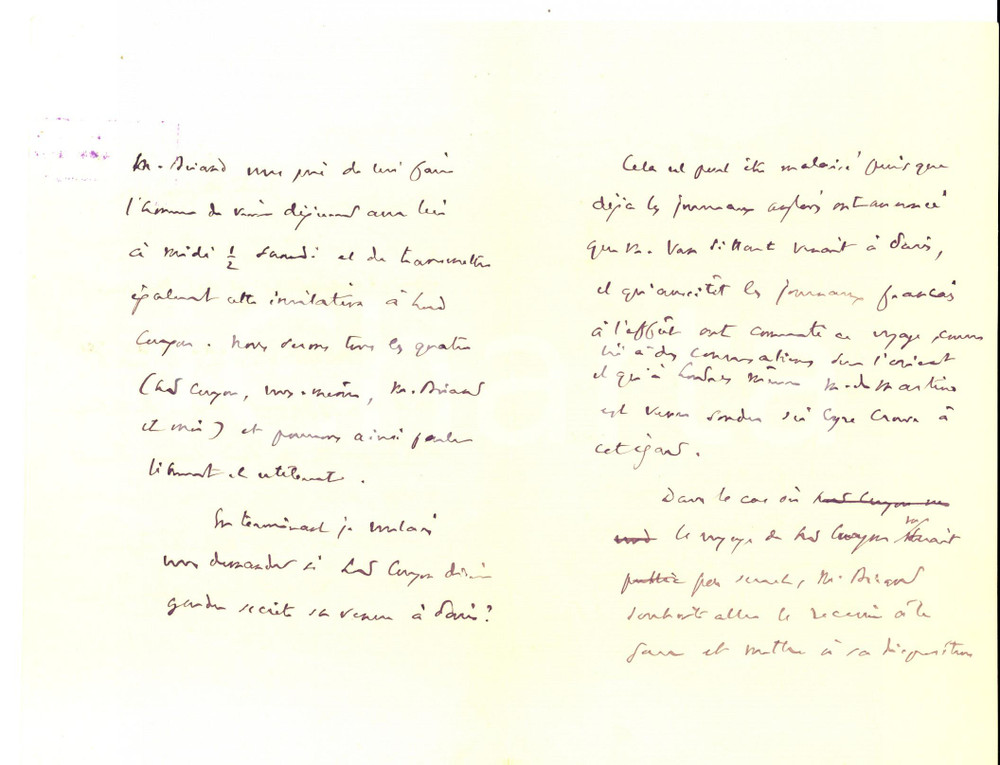 M. Briand vous prie de lui faire
l'honneur de venir déjeuner avec lui
à midi ½ samedi et de transmettre
également cette invitation à Lord
Curzon. Nous serons tous les quatre
(Lord Curzon, vous-même, M. Briand
et moi) et pourrons ainsi parler
librement et utilement.
En terminant je voulais
vous demander si Lord Curzon désire
garder secrète sa venue à Paris?
Cela est peut être malaisé puisque
déjà les journaux anglais ont annoncé
que M. Vansittart venait à Paris,
et qu'aussitôt les journaux français
à l'affût ont commenté ce voyage comme
lié à des conversations sur l'orient
et qu'à Londres même M. de Martino
est venu sonder Sir Eyre Crowe à
cet égard.
Dans le cas où Lord Curzon ne
le voyage de Lord Curzon ne serait
public pas secret, M. Briand
souhaite aller le recevoir à la
gare et mettre à sa disposition